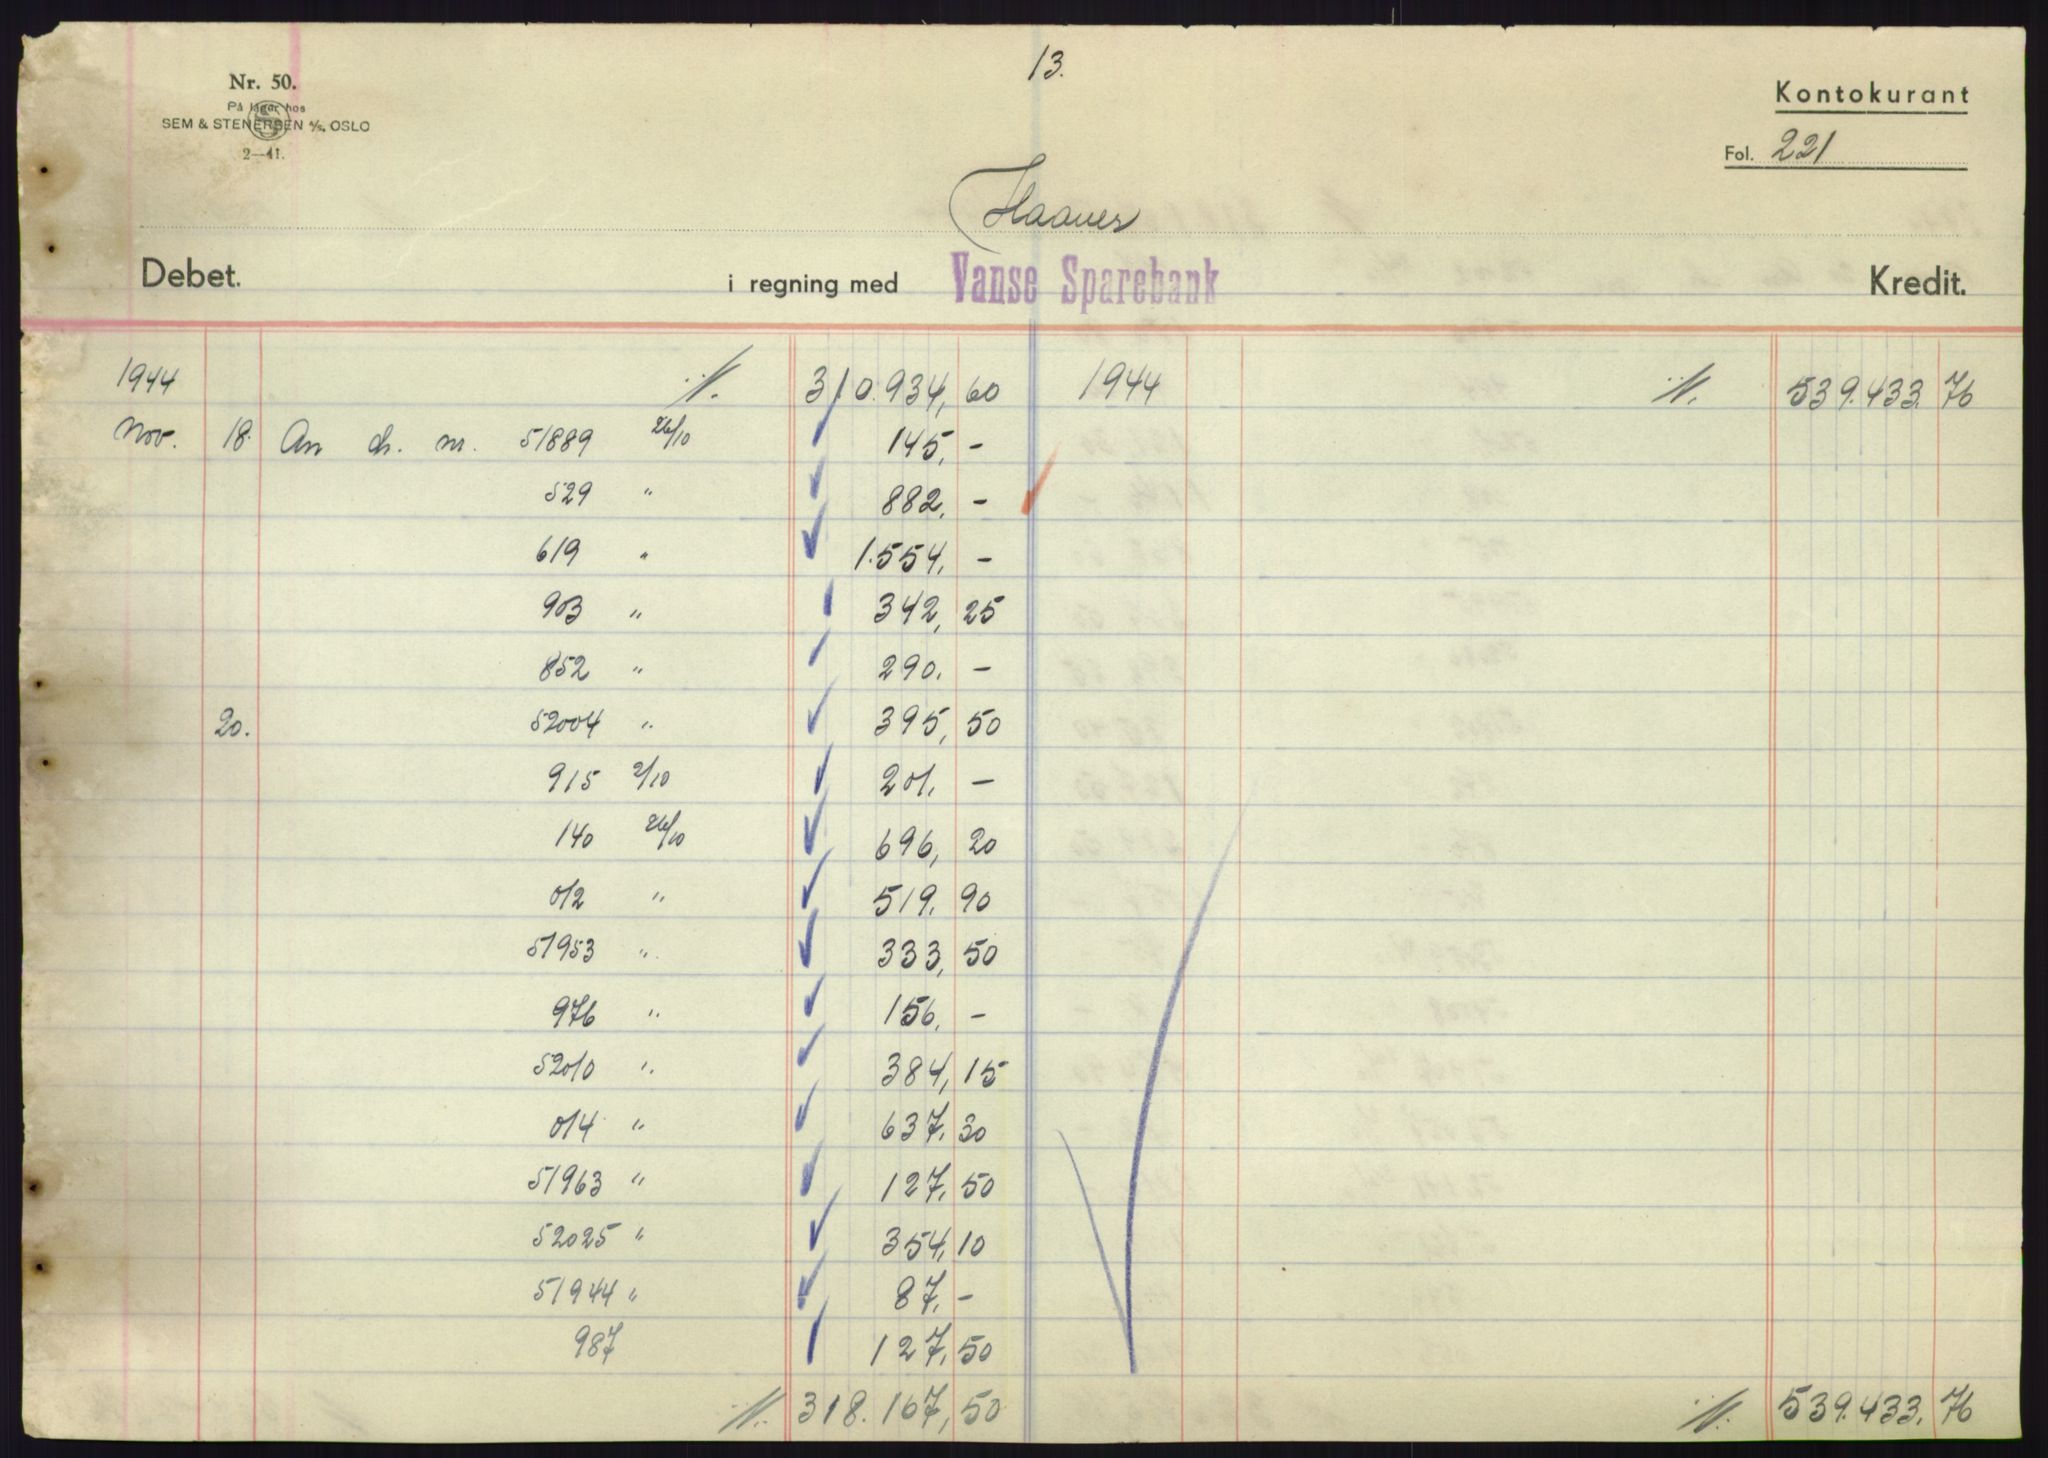 13.
Nr. 50.
På lager hos
SEM & STENERSEN A/S, OSLO
2—41.
Kontokurant
Fol. 221
Haaver
Debet. i regning med Vanse Sparebank Kredit.
1944 ·/. 310.934, 60 1944 ·/. 539.433. 76
Nov. 18. An ch. nr. 51889 26/10 145, -
529 " 882, -
619 " 1.554, -
903 " 342, 25
852 " 290. -
20. 52004 " 395, 50
915 2/10 201. -
140 26/10 696, 20
012 " 519. 90
51953 " 333, 50
976 " 156. -
52010 " 384, 15
014 " 637, 30
51963 " 127, 50
52025 " 354, 10
51944 " 87, -
987 127, 50
·/. 318.167, 50 ·/. 539.433. 76